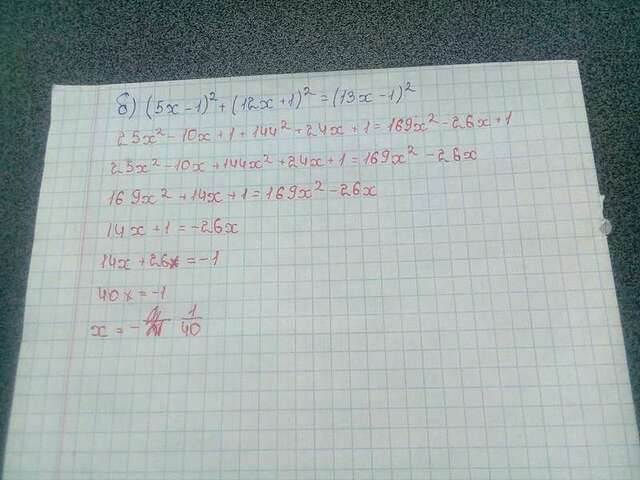 б) (5x-1)² + (12x+1)² = (13x-1)²
25x² - 10x + 1 + 144² + 24x + 1 = 169x² - 26x + 1
25x² - 10x + 144x² + 24x + 1 = 169x² - 26x
169x² + 14x + 1 = 169x² - 26x
14x + 1 = -26x
14x + 26x = -1
40x = -1
x = - 1/40